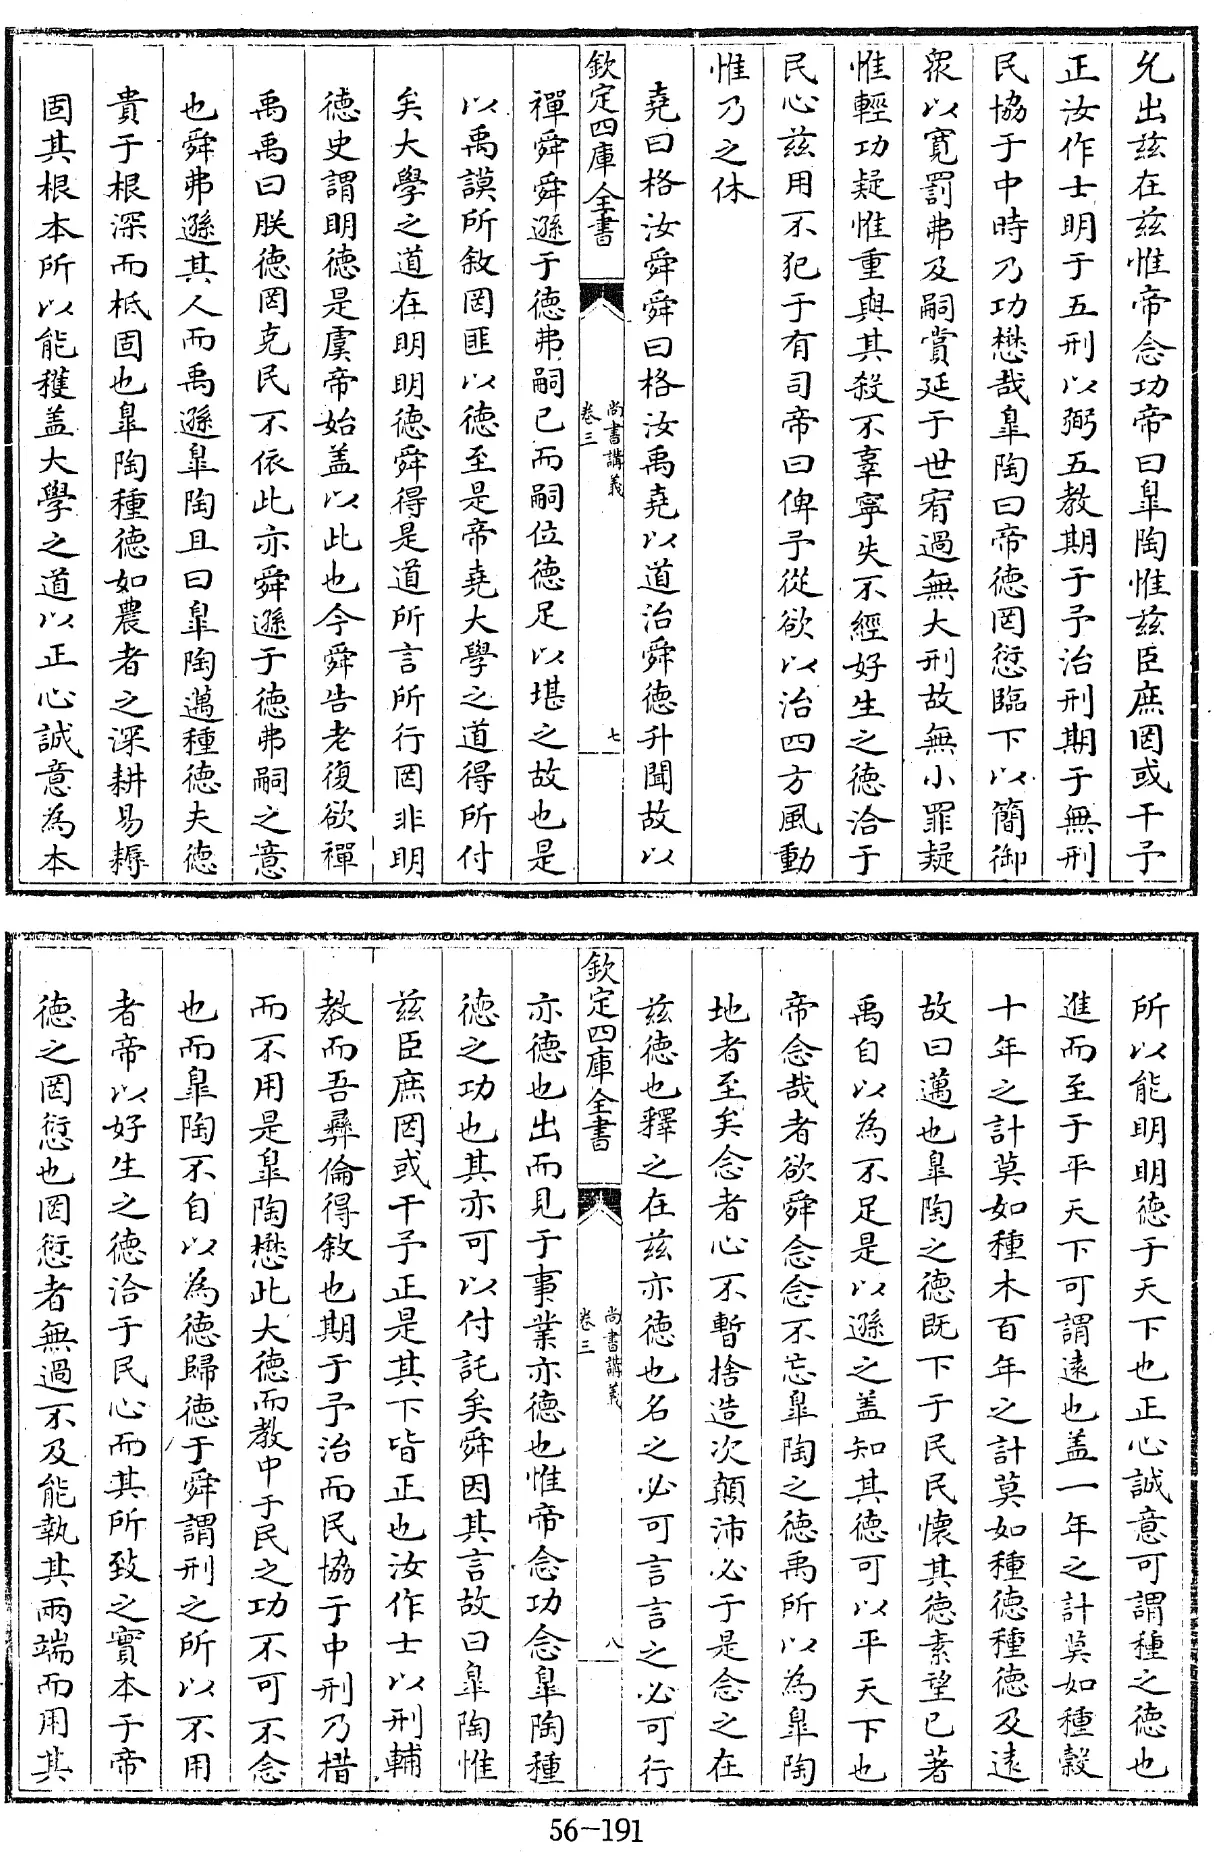 允出兹在兹惟帝念功帝曰臯陶惟兹臣庶罔或干予
正汝作士明于五刑以弼五教期于予治刑期于無刑
民協于中時乃功懋哉臯陶曰帝德罔愆臨下以簡御
衆以寛罰弗及嗣賞延于世宥過無大刑故無小罪疑
惟輕功疑惟重與其殺不辜寧失不經好生之德洽于
民心兹用不犯于有司帝曰俾予從欲以治四方風動
惟乃之休
堯曰格汝舜舜曰格汝禹堯以道治舜德升聞故以
欽定四庫全書
尚書講義
卷三
七
禪舜舜遜于德弗嗣已而嗣位德足以堪之故也是
以禹謨所敘罔匪以德至是帝堯大學之道得所付
矣大學之道在明明德舜得是道所言所行罔非明
德史謂明德是虞帝始盖以此也今舜告老復欲禪
禹禹曰朕德罔克民不依此亦舜遜于德弗嗣之意
也舜弗遜其人而禹遜臯陶且曰臯陶邁種德夫德
貴于根深而柢固也臯陶種德如農者之深耕易耨
固其根本所以能穫盖大學之道以正心誠意為本
所以能明明德于天下也正心誠意可謂種之德也
進而至于平天下可謂遠也盖一年之計莫如種穀
十年之計莫如種木百年之計莫如種德種德及遠
故曰邁也臯陶之德既下于民民懷其德素望已著
禹自以為不足是以遜之盖知其德可以平天下也
帝念哉者欲舜念念不忘臯陶之德禹所以為臯陶
地者至矣念者心不暫捨造次顛沛必于是念之在
兹德也釋之在兹亦德也名之必可言言之必可行
欽定四庫全書
尚書講義
卷三
八
亦德也出而見于事業亦德也惟帝念功念臯陶種
德之功也其亦可以付託矣舜因其言故曰臯陶惟
兹臣庶罔或干予正是其下皆正也汝作士以刑輔
教而吾彛倫得敘也期于予治而民協于中刑乃措
而不用是臯陶懋此大德而教中于民之功不可不念
也而臯陶不自以為德歸德于舜謂刑之所以不用
者帝以好生之德洽于民心而其所致之實本于帝
德之罔愆也罔愆者無過不及能執其兩端而用其
56-191